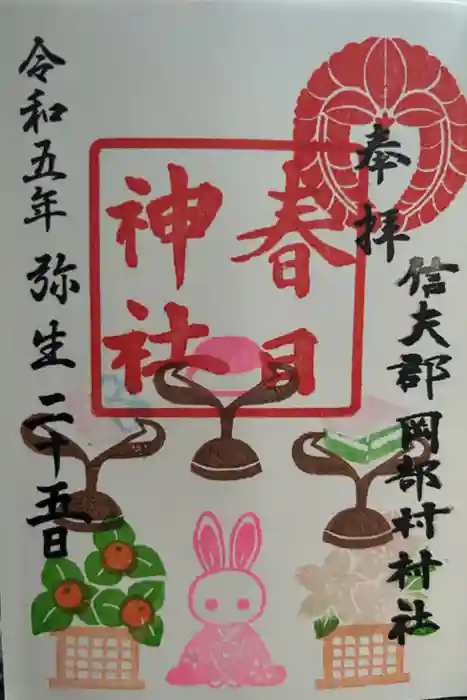 奉拝
信夫郡岡部村村社
春日
神社
令和五年弥生二十五日